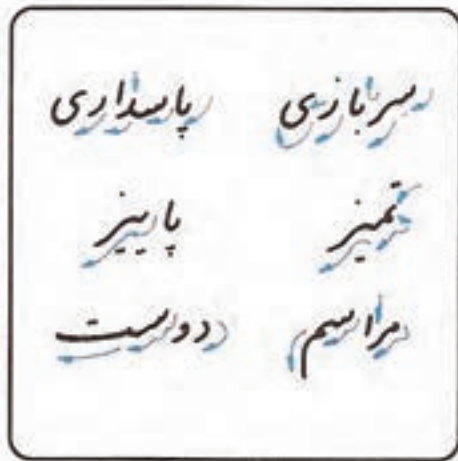 سربازی پاسداری
تمیز پاییز
مراسم دوست